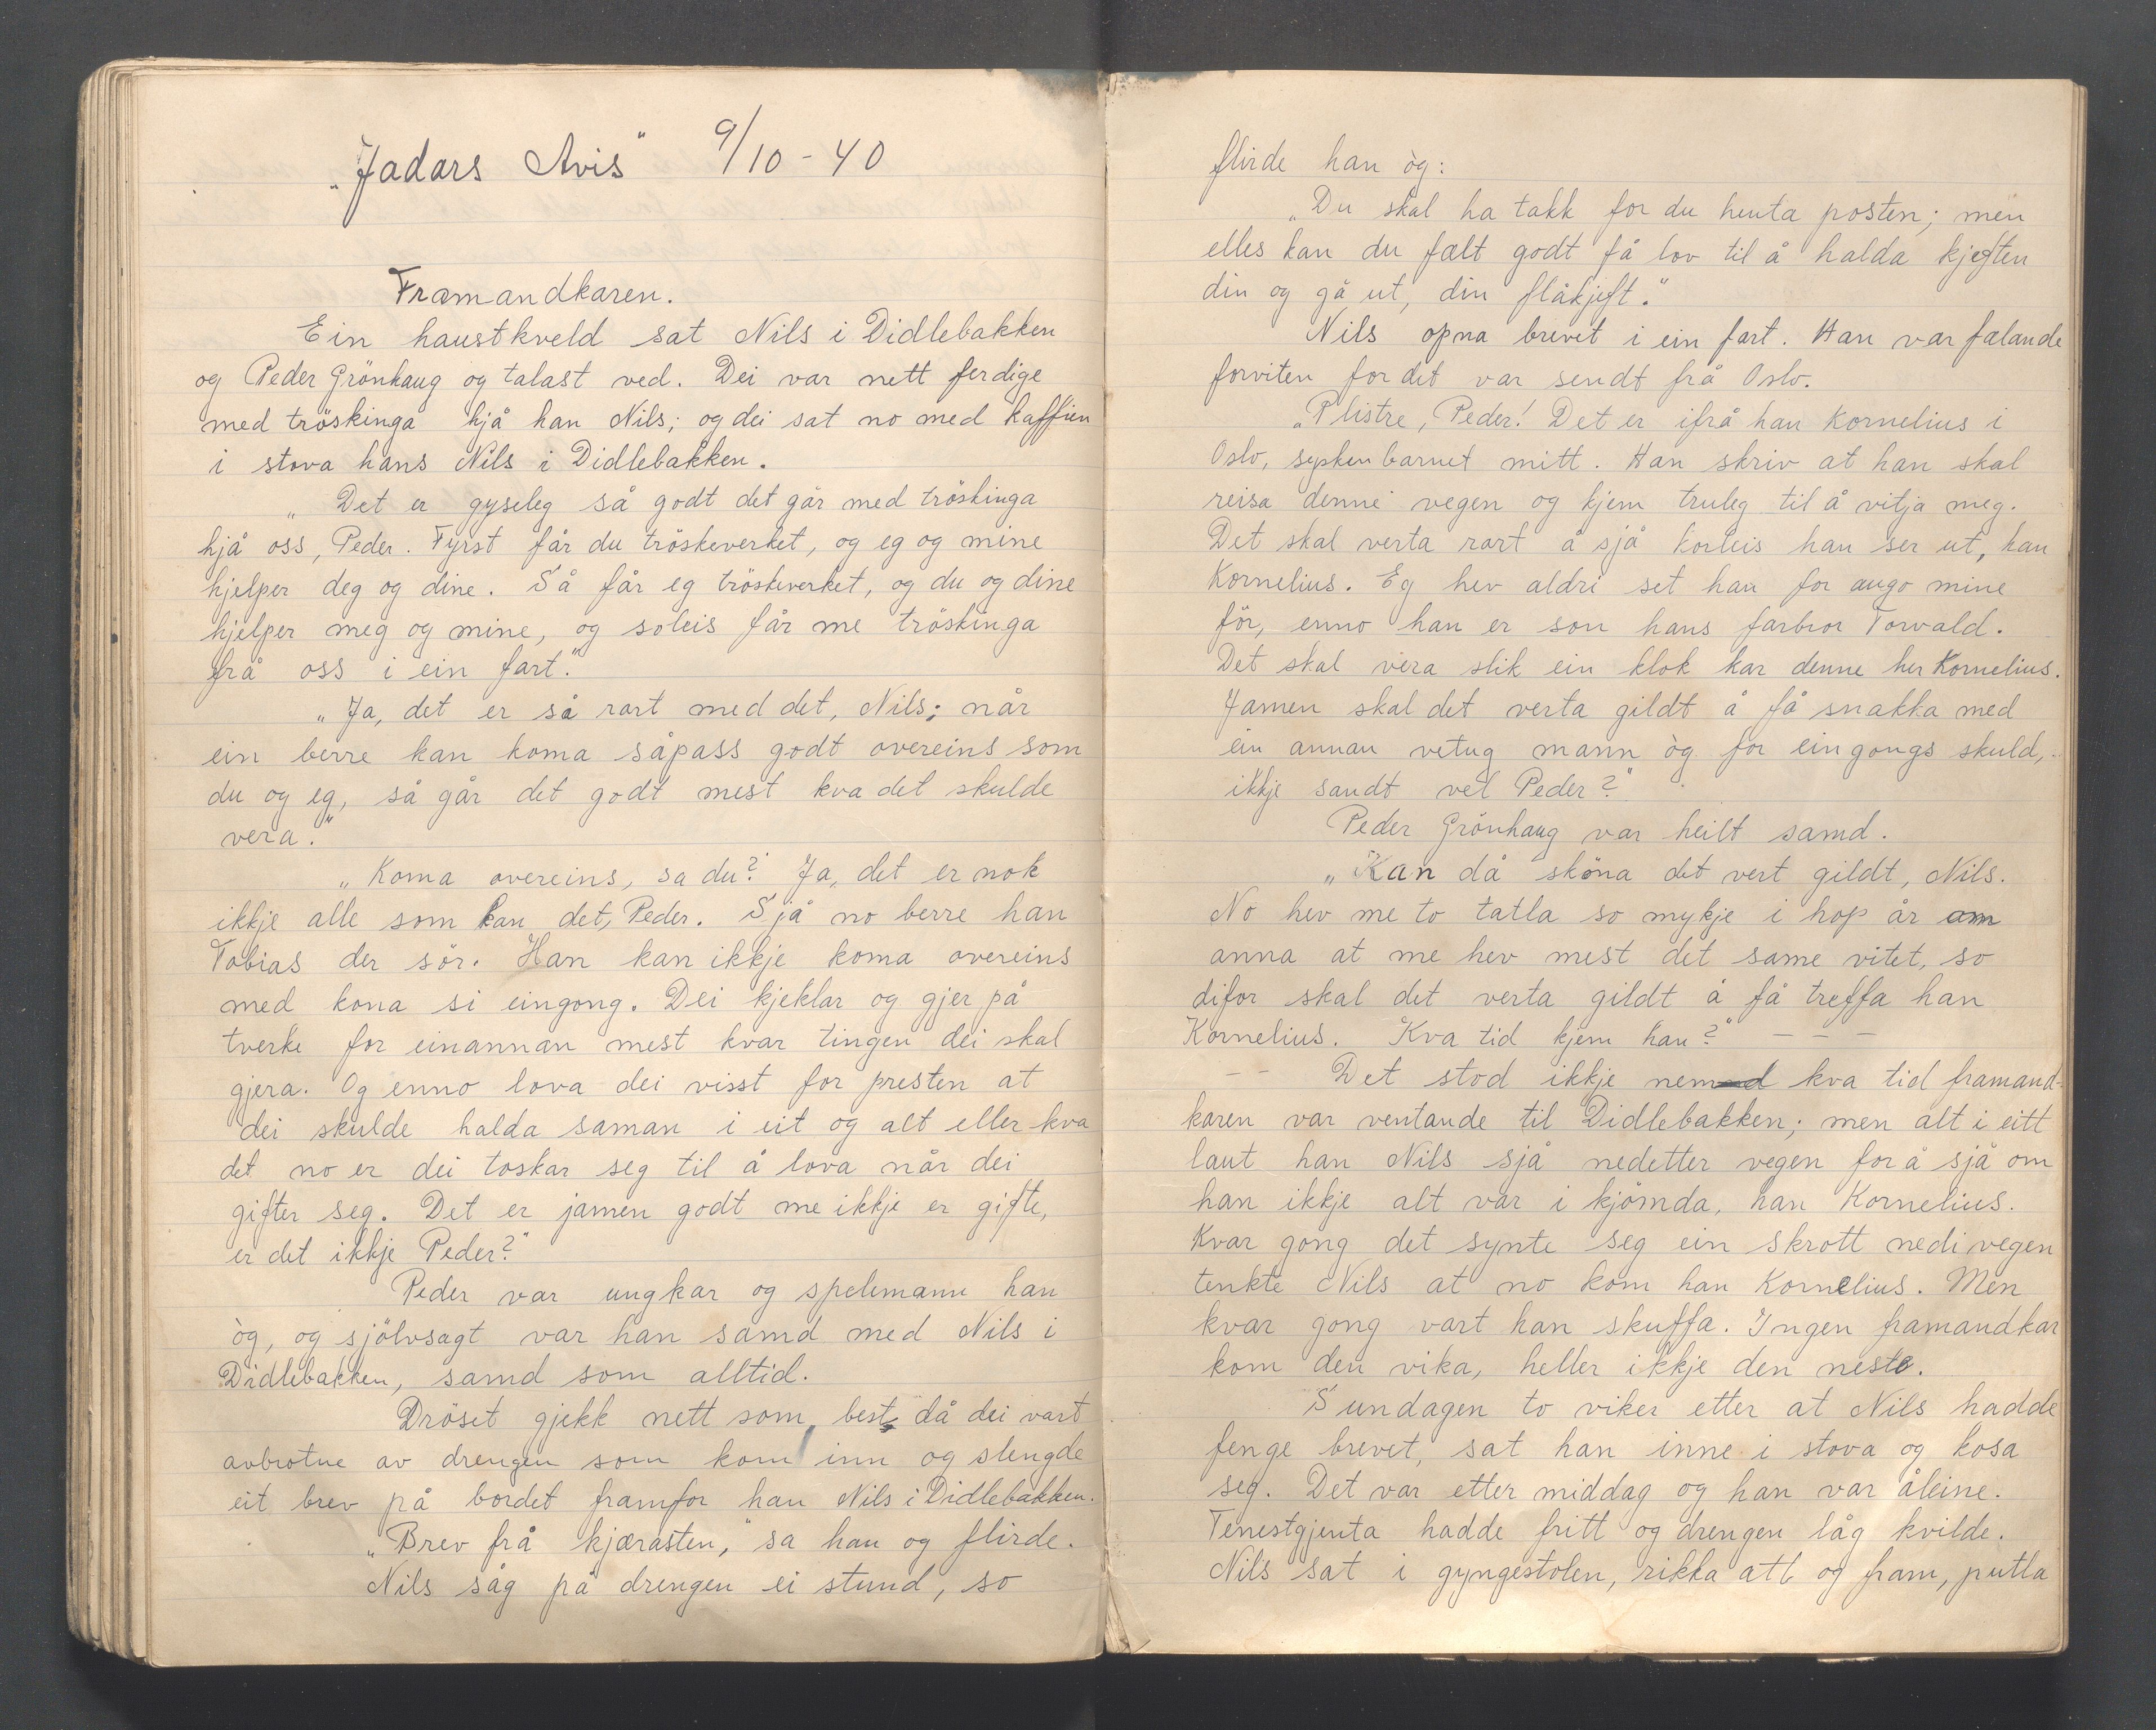 „Jadars Avis" 9/10 - 40
Framandkaren.
Ein haustkveld sat Nils i Didlebakken
og Peder Grönhaug og talast ved. Dei var nett ferdige
med tröskinga hjå han Nils; og dei sat no med kaffien
i stova hans Nils i Didlebakken.
„Det er gyseleg så godt det går med tröskinga
hjå oss, Peder. Fyrst får du tröskeverket, og eg og mine
hjelper deg og dine. Så får eg tröskeverket, og du og dine
hjelper meg og mine, og soleis får me tröskinga
frå oss i ein fart."
„Ja, det er så rart med det, Nils; når
ein berre kan koma såpass godt overeins som
du og eg, så går det godt mest kva det skulde
vera."
„Koma overeins, sa du? Ja, det er nok
ikkje alle som kan det, Peder. Sjå no berre han
Tobias der sör. Han kan ikkje koma overeins
med kona si eingong. Dei kjeklar og gjer på
tverke for einannan mest kvar tingen dei skal
gjera. Og enno lova dei visst for presten at
dei skulde halda saman i eit og alt eller kva
det no er dei toskar seg til å lova når dei
gifter seg. Det er jamen godt me ikkje er gifte,
er det ikkje Peder?"
Peder var ungkar og spelemann han
òg, og sjölvsagt var han samd med Nils i
Didlebakken, samd som alltid.
Dröset gjekk nett som best, då dei vart
avbrotne av drengen som kom inn og slengde
eit brev på bordet framfor han Nils i Didlebakken.
„Brev frå kjærasten," sa han og flirde.
Nils såg på drengen ei stund, so
flirde han òg:
„Du skal ha takk for du henta posten; men
elles kan du fælt godt få lov til å halda kjeften
din og gå ut, din flåkjeft."
Nils opna brevet i ein fart. Han var fælande
forviten for det var sendt frå Oslo.
„Plistre, Peder! Det er ifrå han Kornelius i
Oslo, syskenbarnet mitt. Han skriv at han skal
reisa denne vegen og kjem truleg til å vitja meg.
Det skal verta rart å sjå korleis han ser ut, han
Kornelius. Eg hev aldri set han for augo mine
för, enno han er son hans farbror Torvald.
Det skal vera slik ein klok kar denne her Kornelius.
Jamen skal det verta gildt å få snakka med
ein annan vetug mann òg for eingongs skuld,
ikkje sandt vel Peder?"
Peder Grönhaug var heilt samd.
„Kan då sköna det vert gildt, Nils.
No hev me to tatla so mykje i hop år om
anna at me hev mest det same vitet, so
difor skal det verta gildt å få treffa han
Kornelius. Kva tid kjem han?" — — —
— — Det stod ikkje nemnd kva tid framand-
karen var ventande til Didlebakken; men alt i eitt
laut han Nils sjå nedetter vegen for å sjå om
han ikkje alt var i kjömda, han Kornelius.
Kvar gong det synte seg ein skrott nedi vegen
tenkte Nils at no kom han Kornelius. Men
kvar gong vart han skuffa. Ingen framandkar
kom den vika, heller ikkje den neste.
Sundagen to viker etter at Nils hadde
fenge brevet, sat han inne i stova og kosa
seg. Det var etter middag og han var åleine.
Tenestgjenta hadde fritt og drengen låg kvilde.
Nils sat i gyngestolen, rikka att og fram, putla